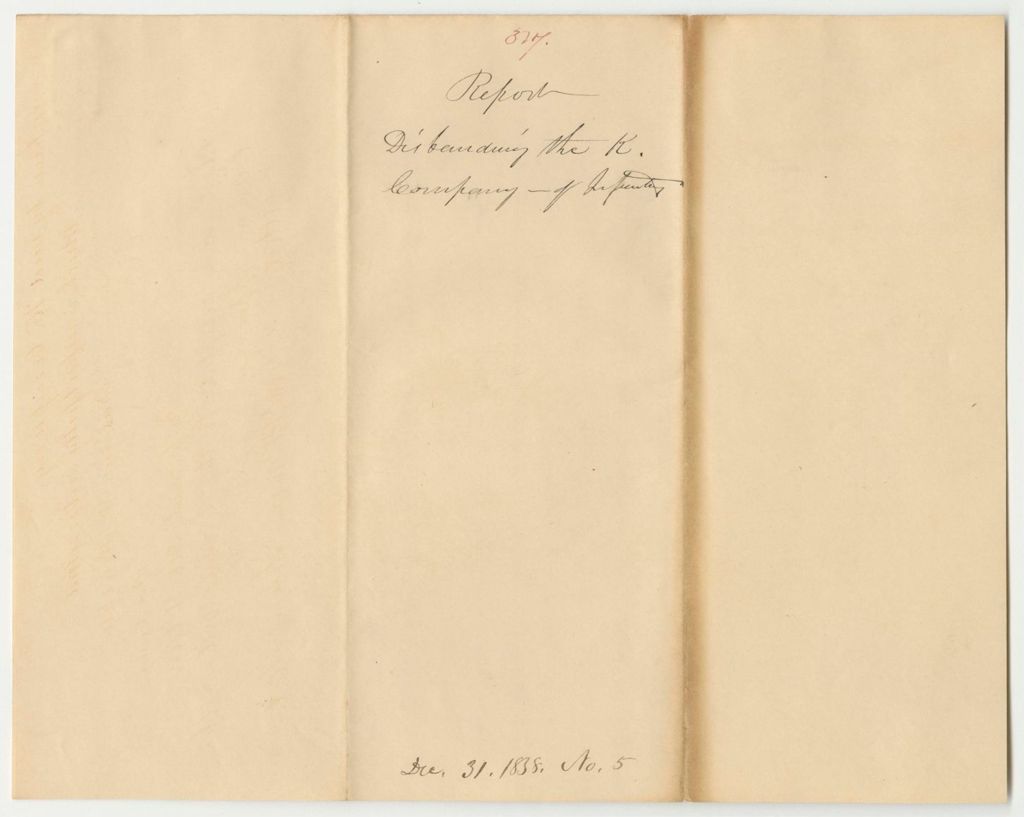 327.
Report
Disbanding the K.
Company - of Infantry
Dec. 31. 1838. No. 5